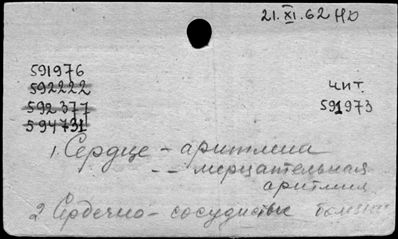 21.XI.62 НО
591976
592222
592377
594731
чит.
591973
1. Сердце - аритмия
-- мерцательная
аритмия
2 Сердечно- сосудистые